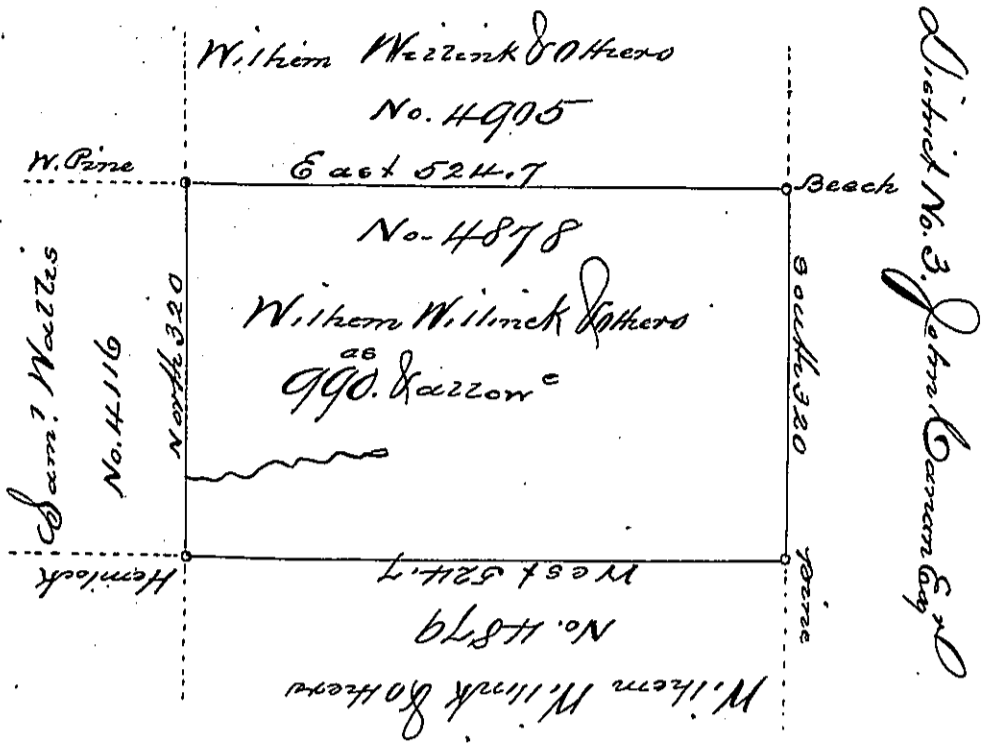 Wilhem Willink & Others
No. 4905
W. Pine
East 524.7
Beech
No. 4878
Wilhem Willinck & Others
990. as & allowe
North 320
South 320
Saml. Wallis
No. 4116
Hemlock
West 524.7
Pine
No. 4879
Wilhem Willink & Others
District No. 3. John Canan Esqr